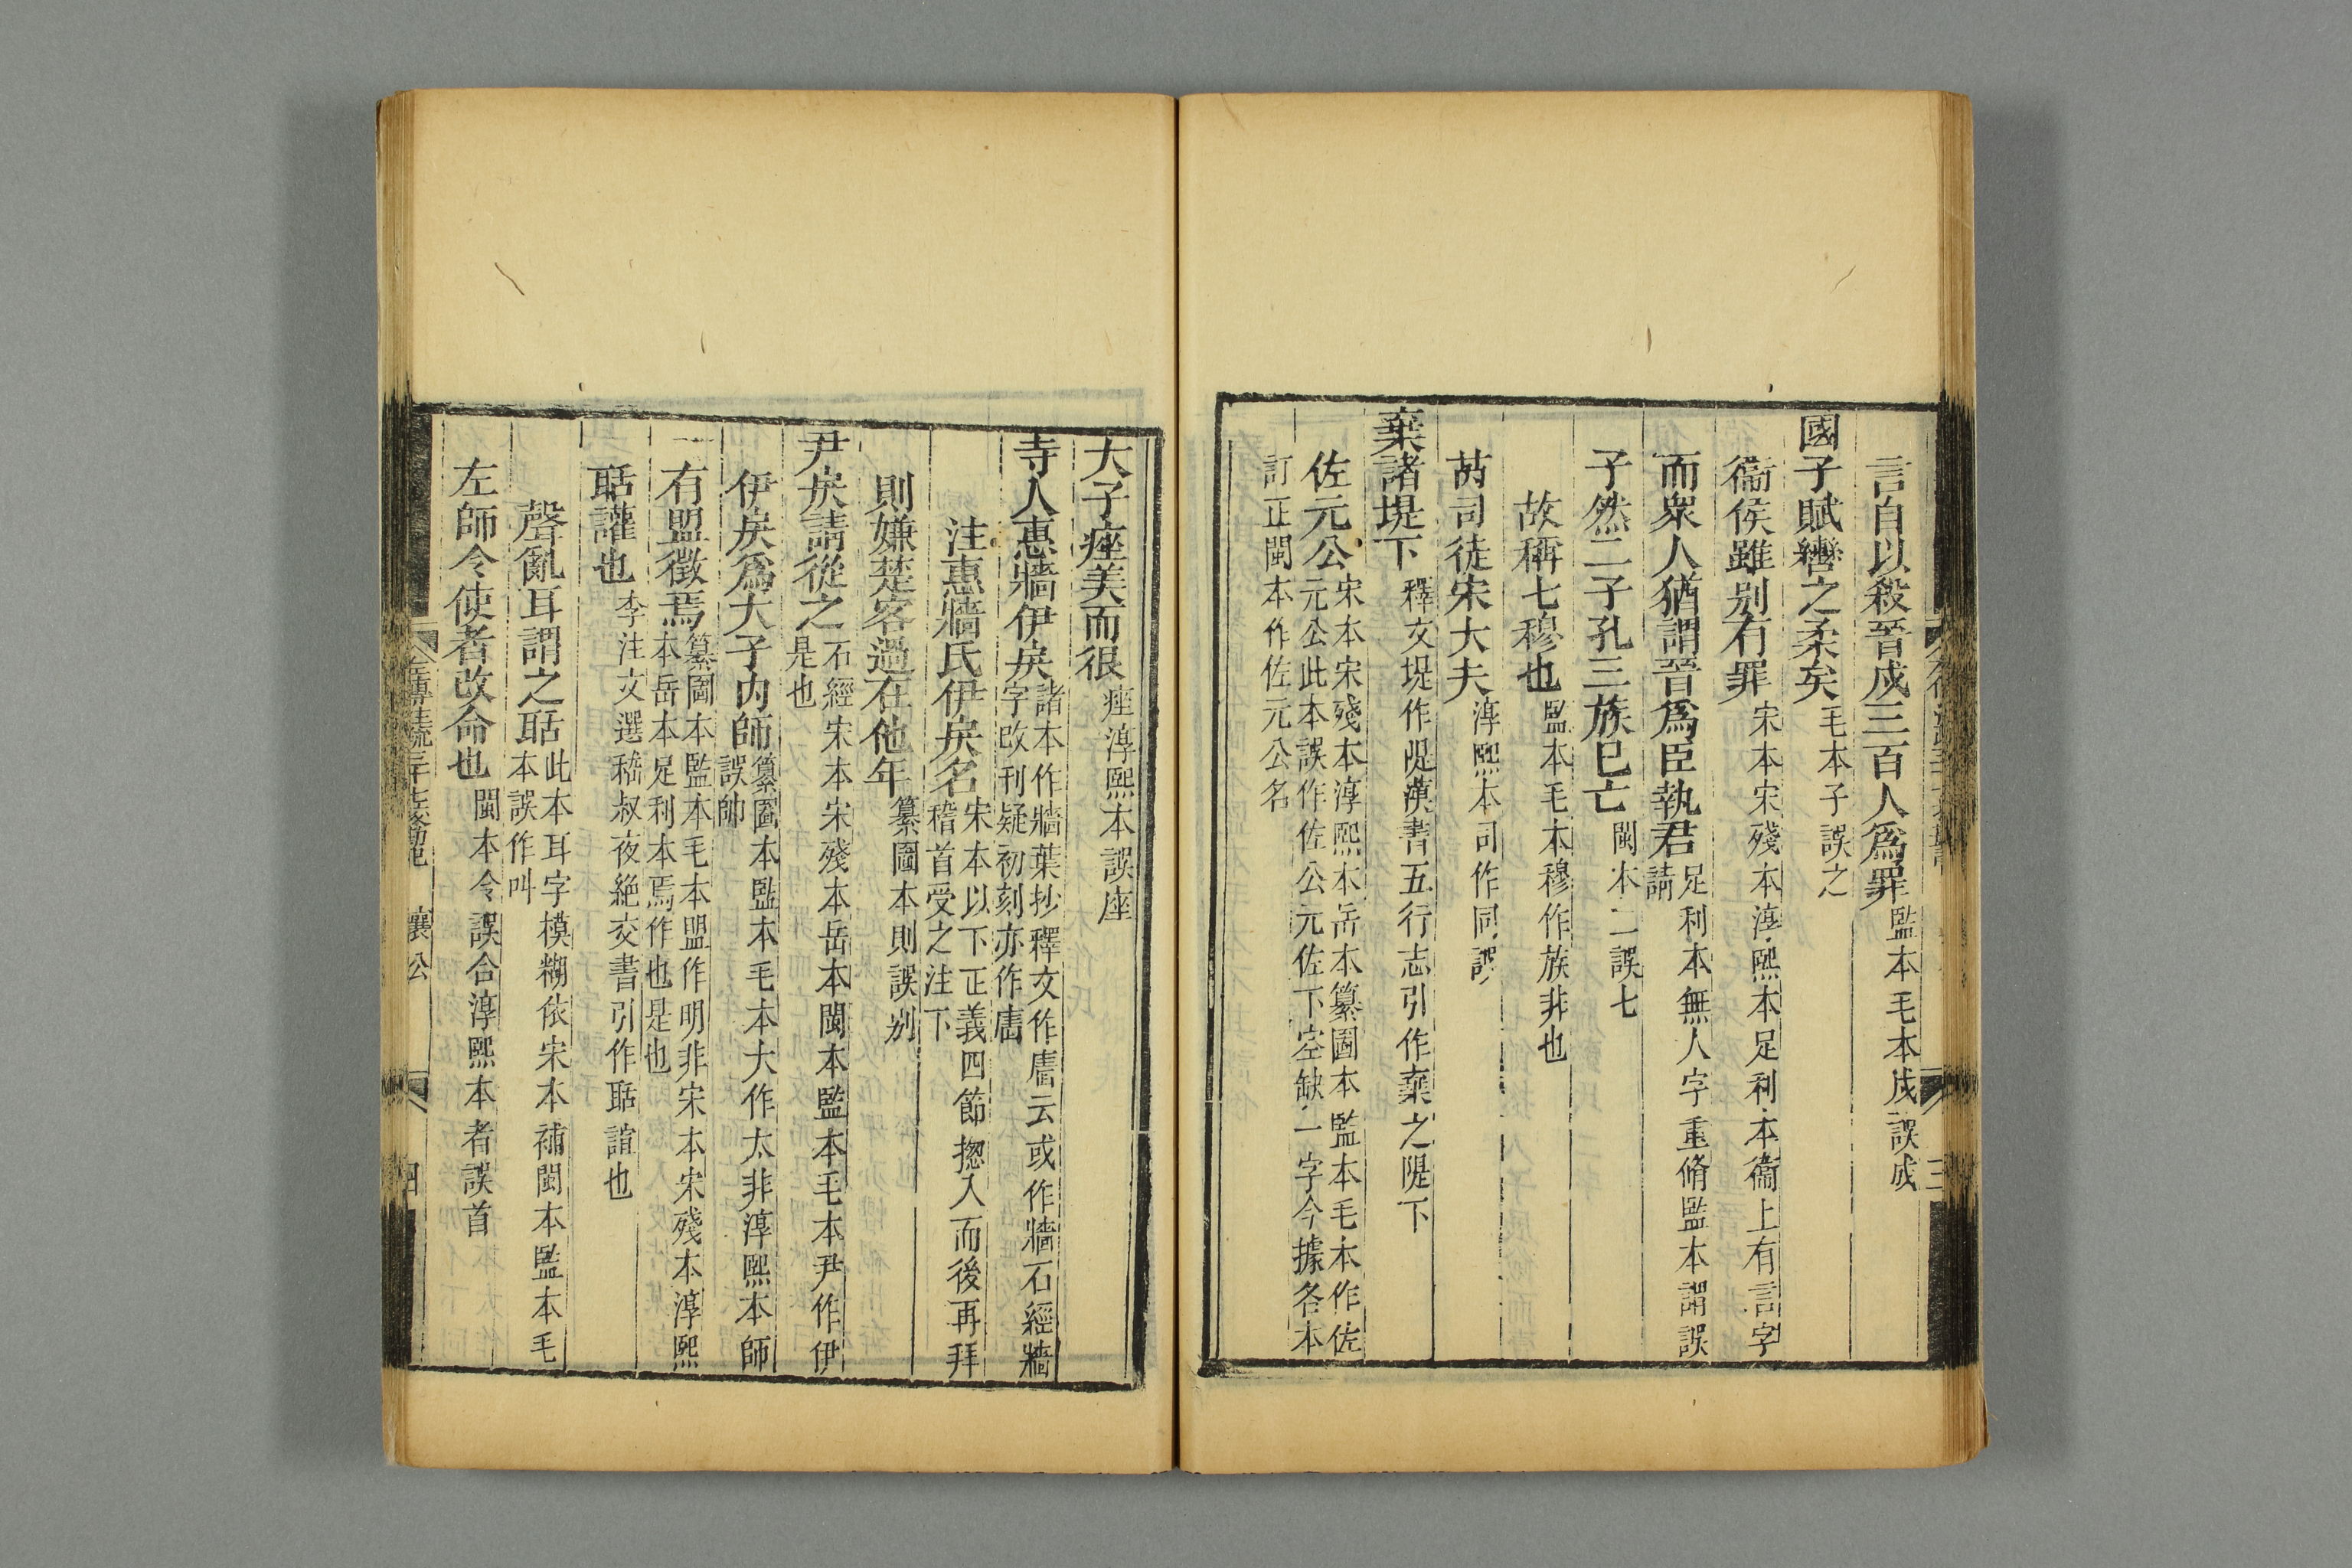 言自以殺晉戍三百人爲罪監本毛本戍誤成
國子賦轡之柔矣毛本子誤之
衞侯雖别有罪宋本宋殘本淳熙本足利本衞上有言字
而衆人猶謂晉爲臣執君足利本無人字重脩監本謂誤請
子然二子孔三族已亡閩本二誤七
故稱七穆也監本毛本穆作族非也
芮司徒宋大夫淳熙本司作同誤
棄諸堤下釋文堤作隄漢書五行志引作棄之隄下
佐元公宋本宋殘本淳熙本岳本纂圖本監本毛本作佐元公此本誤作佐公元佐下空缺一字今據各本
訂正閩本作佐元公名
大子痤美而很痤淳熙本誤座
寺人惠牆伊戾諸本作牆葉抄釋文作廧云或作牆石經牆字改刊疑初刻亦作廧
注惠牆氏伊戾名宋本以下正義四節揔入而後再拜稽首受之注下
則嫌楚客過在他年纂圖本則誤别
尹戾請從之石經宋本宋殘本岳本閩本監本毛本尹作伊是也
伊戾爲大子内師纂圖本監本毛本大作太非淳熙本師誤帥
有盟徵焉纂圖本監本毛本盟作明非宋本宋殘本淳熙本岳本足利本焉作也是也
聒讙也李注文選嵇叔夜絶交書引作聒諠也
聲亂耳謂之聒此本耳字模糊依宋本補閩本監本毛本誤作叫
左師令使者改命也閩本令誤合淳熙本者誤首
襄公
四